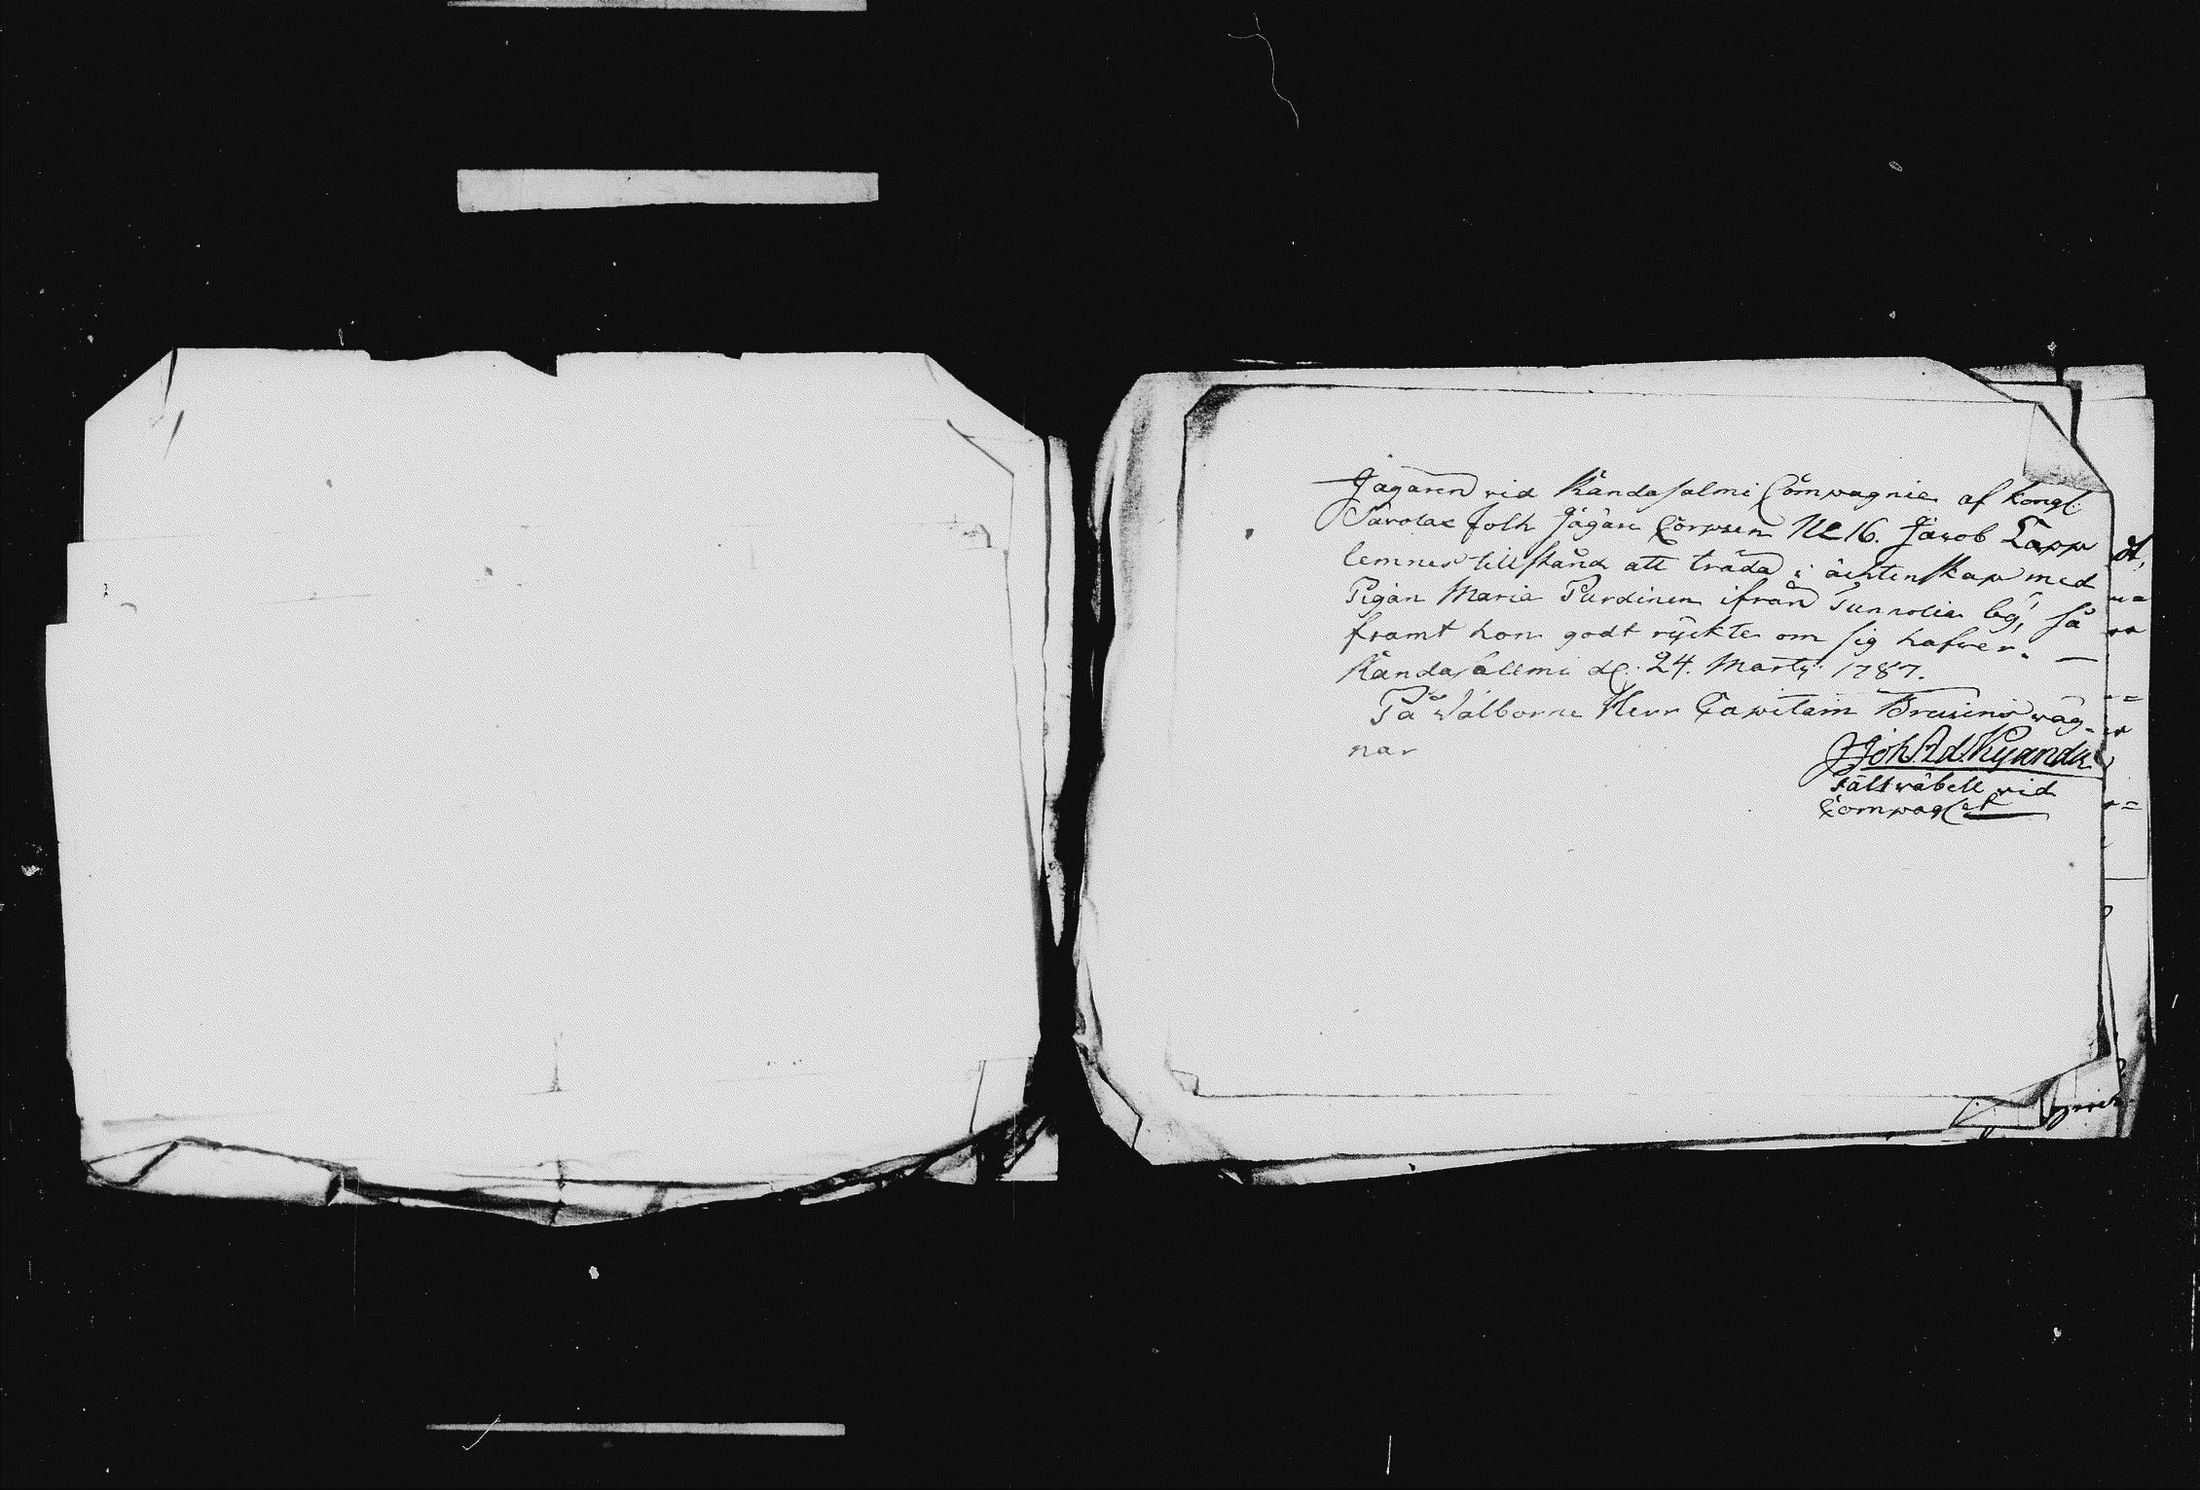 Jägaren vid Kändasalmi Compagnie af Kongl.
Savolax Joth Jägare Corpsen No 16. Jacob Lapp
lemnes tillstånd att träda i ächtenskap med
Pigan Maria Purdinen ifrån by, så
framt hon godt ryckte om sig hafver. —
Kändasallmi d. 24. Martij 1787.
På Välborne Herr Capitain Brusins väg-
nar
Joh Ad. Kyander
Fältväbell vid
Compagiet